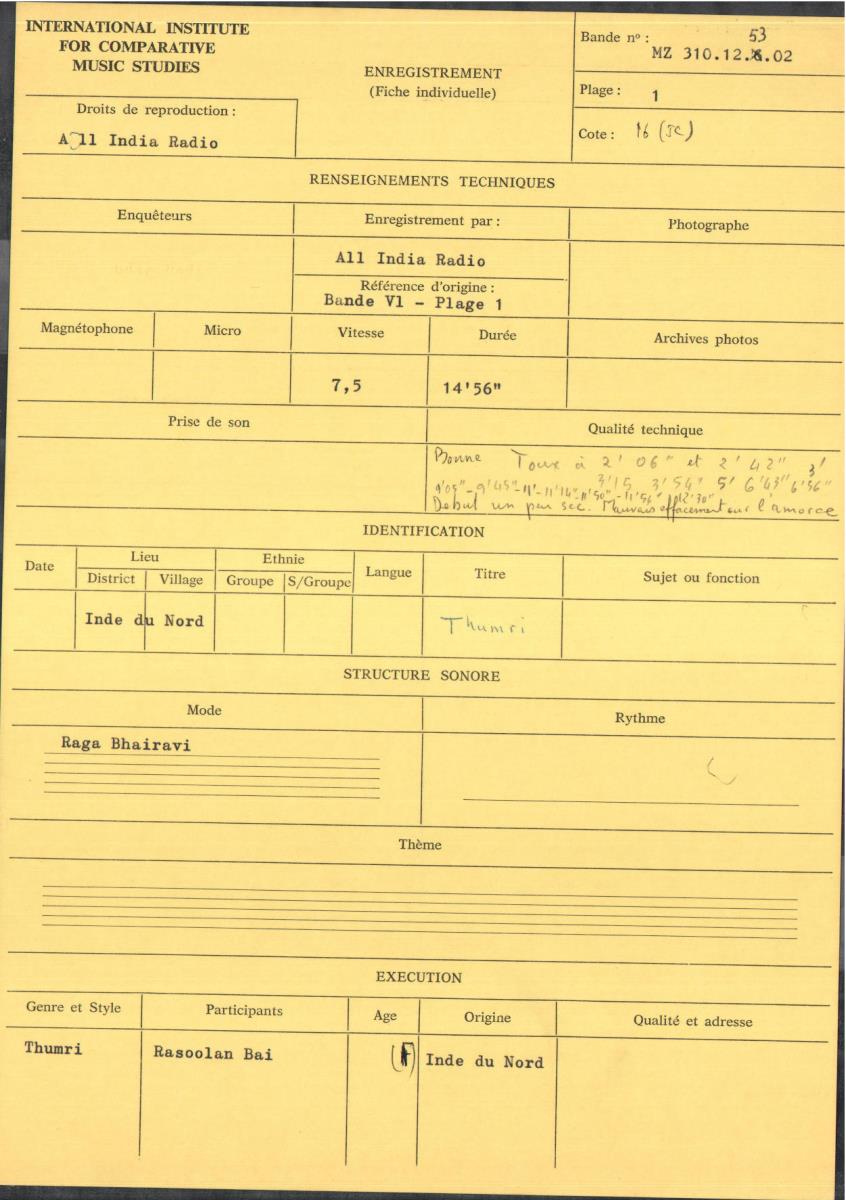 INTERNATIONAL INSTITUTE
FOR COMPARATIVE
MUSIC STUDIES
Droits de reproduction :
All India Radio
ENREGISTREMENT
(Fiche individuelle)
Bande nº :
53
MZ 310.12.02
Plage : 1
Cote : 16 (JC)
RENSEIGNEMENTS TECHNIQUES
Enquêteurs
Enregistrement par :
Photographe
All India Radio
Référence d'origine :
Bande V1 - Plage 1
Magnétophone
Micro
Vitesse
Durée
Archives photos
7,5
14'56"
Prise de son
Qualité technique
Bonne Toux à 2' 06" et 2' 42" 3'
3'15 3'54" 5' 6'43" 6'56"
9'05"-9'45"-11'-11'14"-11'50"-11'56" 12'30"
Debut un peu sec. Mauvais effacement sur l'amorce
IDENTIFICATION
Date
Lieu
Ethnie
Langue
Titre
Sujet ou fonction
District
Village
Groupe
S/Groupe
Inde du Nord
Thumri
STRUCTURE SONORE
Mode
Rythme
Raga Bhairavi
Thème
EXECUTION
Genre et Style
Participants
Age
Origine
Qualité et adresse
Thumri
Rasoolan Bai
Inde du Nord